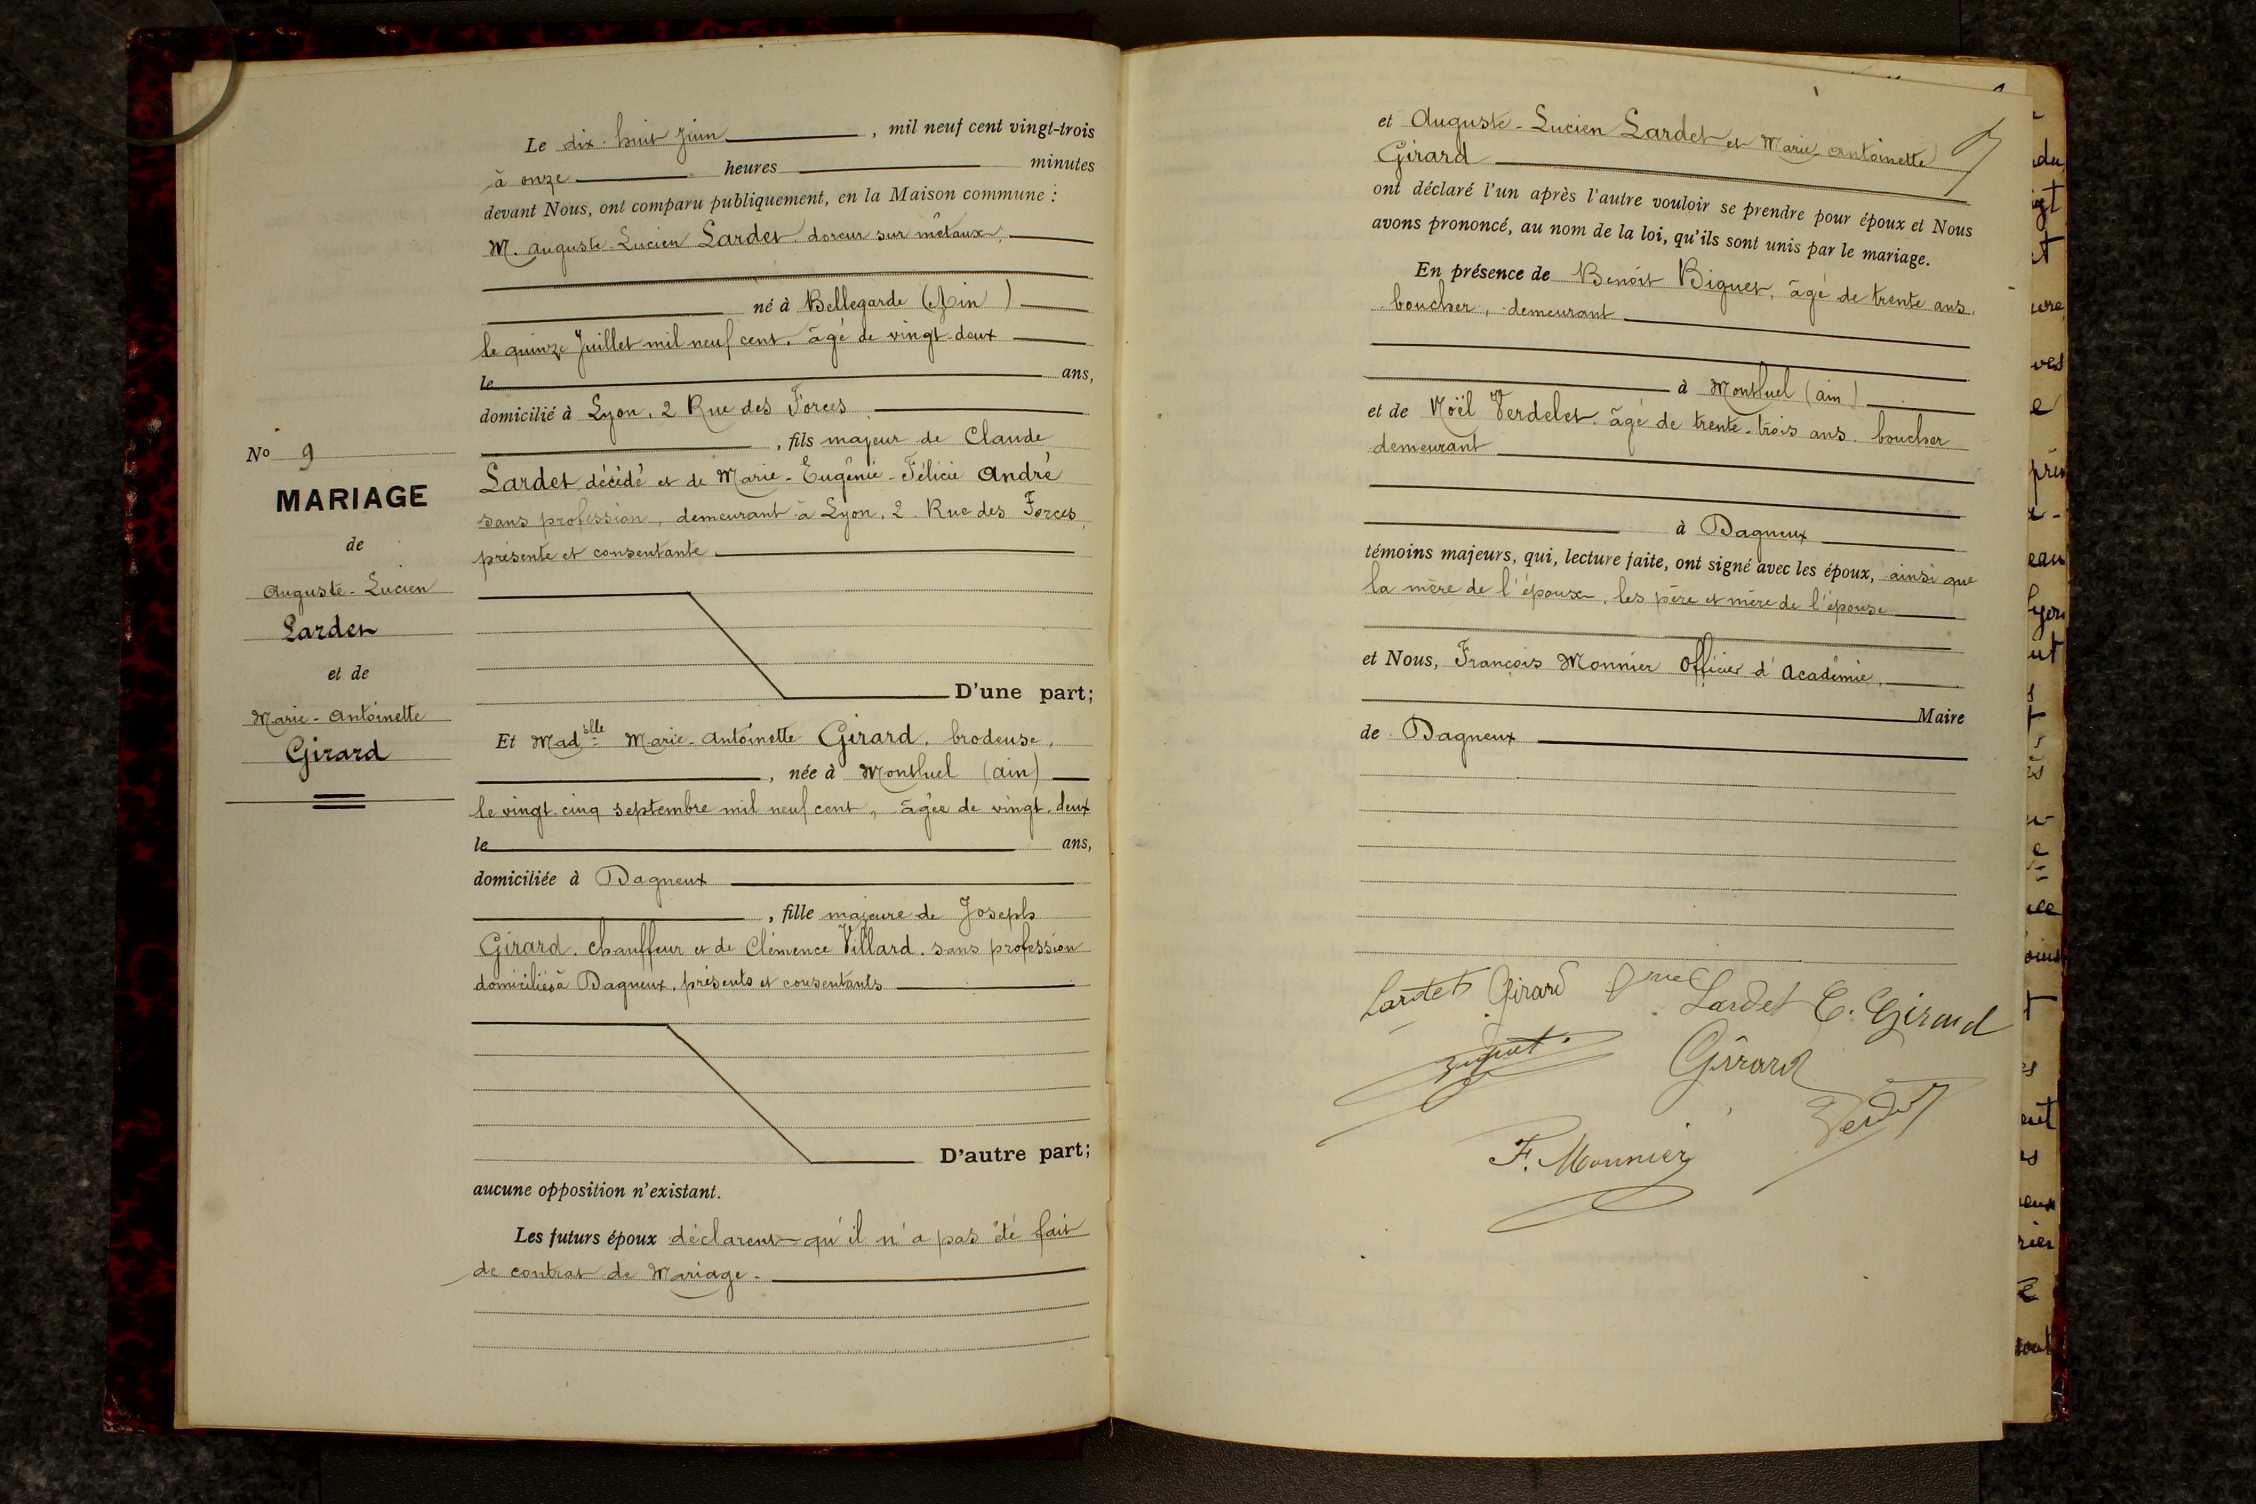 Le dix-huit Juin, mil neuf cent vingt-trois
à onze heures minutes
devant Nous, ont comparu publiquement, en la Maison commune :
M. Auguste-Lucien Lardet, doreur sur métaux,
né à Bellegarde (Ain)
le quinze Juillet mil neuf cent, âgé de vingt-deux
le ans,
domicilié à Lyon, 2 Rue des Forces
, fils majeur de Claude
Lardet décédé et de Marie-Eugénie-Félicie André
sans profession, demeurant à Lyon, 2 Rue des Forces,
présente et consentante
D'une part;
Et Mad elle Marie-Antoinette Girard, brodeuse,
, née à Montluel (Ain)
le vingt-cinq septembre mil neuf cent, âgée de vingt-deux
le ans,
domiciliée à Dagneux
, fille majeure de Joseph
Girard, chauffeur et de Clémence Villard, sans profession
domiciliés à Dagneux, présents et consentants
D'autre part;
aucune opposition n'existant.
Les futurs époux déclarent qu'il n'a pas été fait
de contrat de Mariage.
No 9
MARIAGE
de
Auguste-Lucien
Lardet
et de
Marie-Antoinette
Girard
et Auguste-Lucien Lardet et Marie-Antoinette
Girard
ont déclaré l'un après l'autre vouloir se prendre pour époux et Nous
avons prononcé, au nom de la loi, qu'ils sont unis par le mariage.
En présence de Benoît Biguet, âgé de trente ans,
boucher, demeurant
à Montluel (Ain)
et de Noël Verdelet, âgé de trente-trois ans, boucher
demeurant
à Dagneux
témoins majeurs, qui, lecture faite, ont signé avec les époux, ainsi que
la mère de l'époux, les père et mère de l'épouse
et Nous, François Monnier Officier d'Académie,
Maire
de Dagneux
Lardet Girard Lardet C. Girard
Biguet Girard
F. Monnier